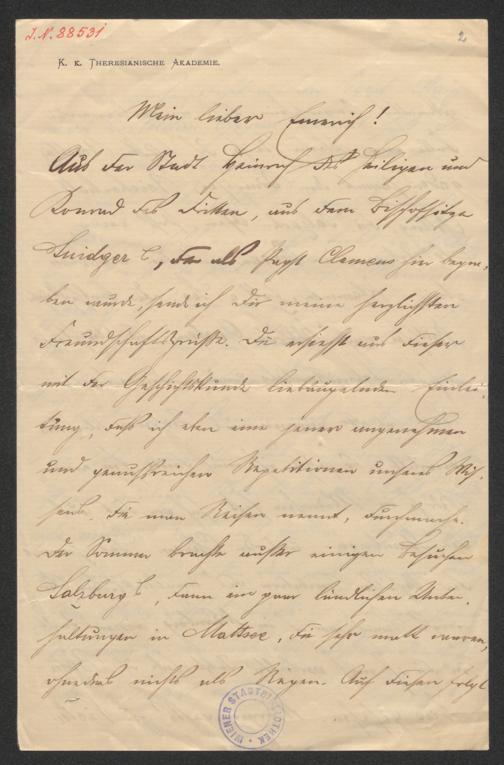 I.N. 88531
2
K. K. THERESIANISCHE AKADEMIE.
Mein lieber Emerich!
Aus der Stadt Heinrich des Heiligen und
Konrad des Dritten, aus dem Bischofsitze
Suidger's, der als Papst Clemens hier begra-
ben wurde, sende ich Dir meine herzlichsten
Freundschaftsgrüße. Du ersiehst aus dieser
mit der Geschichtskunde liebäugelnden Einlei-
tung, daß ich eben eine jener angenehmen
und genußreichen Repetitionen unseres Wis-
sens, die man Reisen nennt, durchmache.
Der Sommer brachte außer einigen Besuchen
Salzburg's, dann ein paar ländlichen Unter-
haltungen in Mattsee, die sehr matt waren,
ohnedies nichts als Regen. Auf diesen folgt
WIENER STADTBIBLIOTHEK